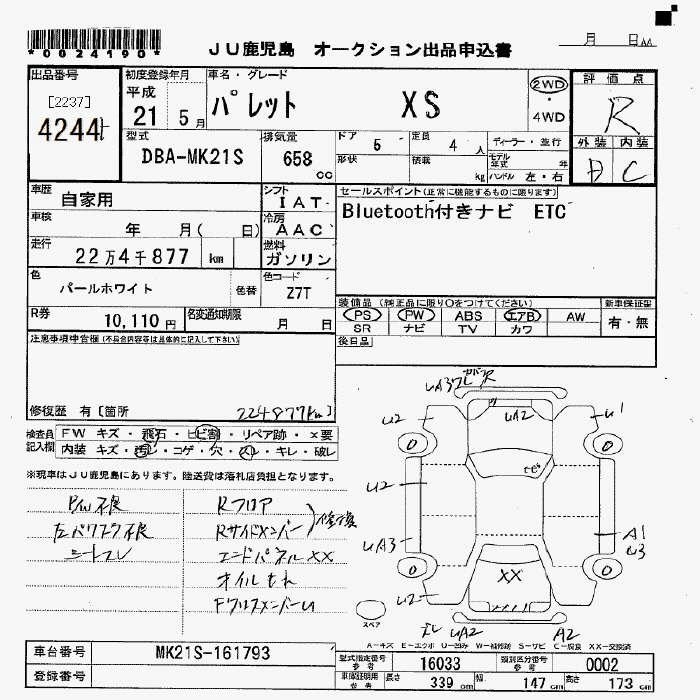 *0024190*
JU鹿児島 オークション出品申込書
月 日
出品番号 初度登録年月 車名・グレード 評価点
[2237] 平成 パレット XS 2WD ・ 4WD R
4244 21 5月
外装 内装
型式 排気量 ドア 5 定員 4 人 ディーラー・並行
DBA-MK21S 658 cc 形状 積載 kg モデル年式 年 C
ハンドル 左・右
車歴 自家用 シフト IAT セールスポイント(正常に機能するものに限ります)
車検 年 月( 日) 冷房 AAC Bluetooth付きナビ ETC
走行 22万4千877 km 燃料 ガソリン
色 パールホワイト 色替 色コード Z7T
装備品(純正品に限り○をつけてください) 新車保証書
R券 10,110円 名変通知期限 月 日 PS PW ABS エアB AW 有・無
SR ナビ TV カワ
注意事項申告欄(不具合内容等は具体的に記入して下さい) 後日品
修復歴 有[箇所 224877km]
検査員記入欄 FW キズ・飛石・ヒビ割・リペア跡・×要
内装 キズ・汚レ・コゲ・穴・スレ・キレ・破レ
※現車はJU鹿児島にあります。陸送費は落札店負担となります。
P/W不良 Rフロア
左パワスラ不良 Rサイドメンバー 修復
シートスレ エンドパネルXX
オイルもれ
UA2
U2 U1
U2
UA3 A1
U3
XX
U2
UA2 A2
スペア
A-キズ E-エクボ U-凹み W-補修跡 S-サビ C-腐食 XX-交換済
車台番号 MK21S-161793 型式指定番号 参考 16033 類別区分番号 参考 0002
登録番号 車庫証明用 参考 長さ 339 cm 幅 147 cm 高さ 173 cm